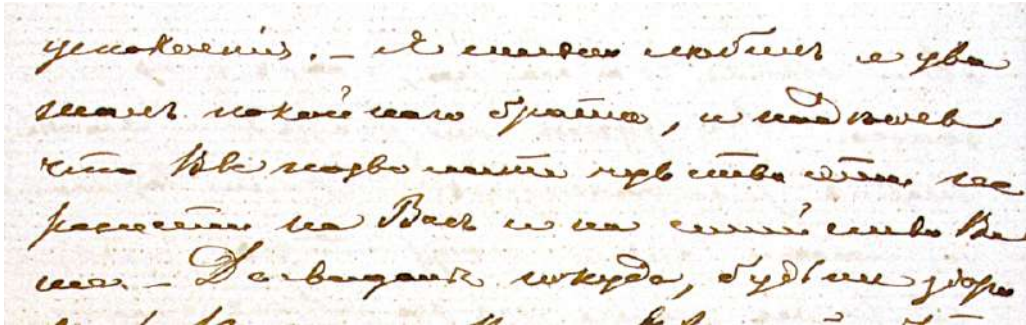 успокоенiя. – Я много любилъ и ува
жалъ покойнаго брата, и надѣюсь
что Вы позволите чувства эти пе
ренести на Васъ и на семейство Ва
ше. – До свиданья покуда, будьте здоро